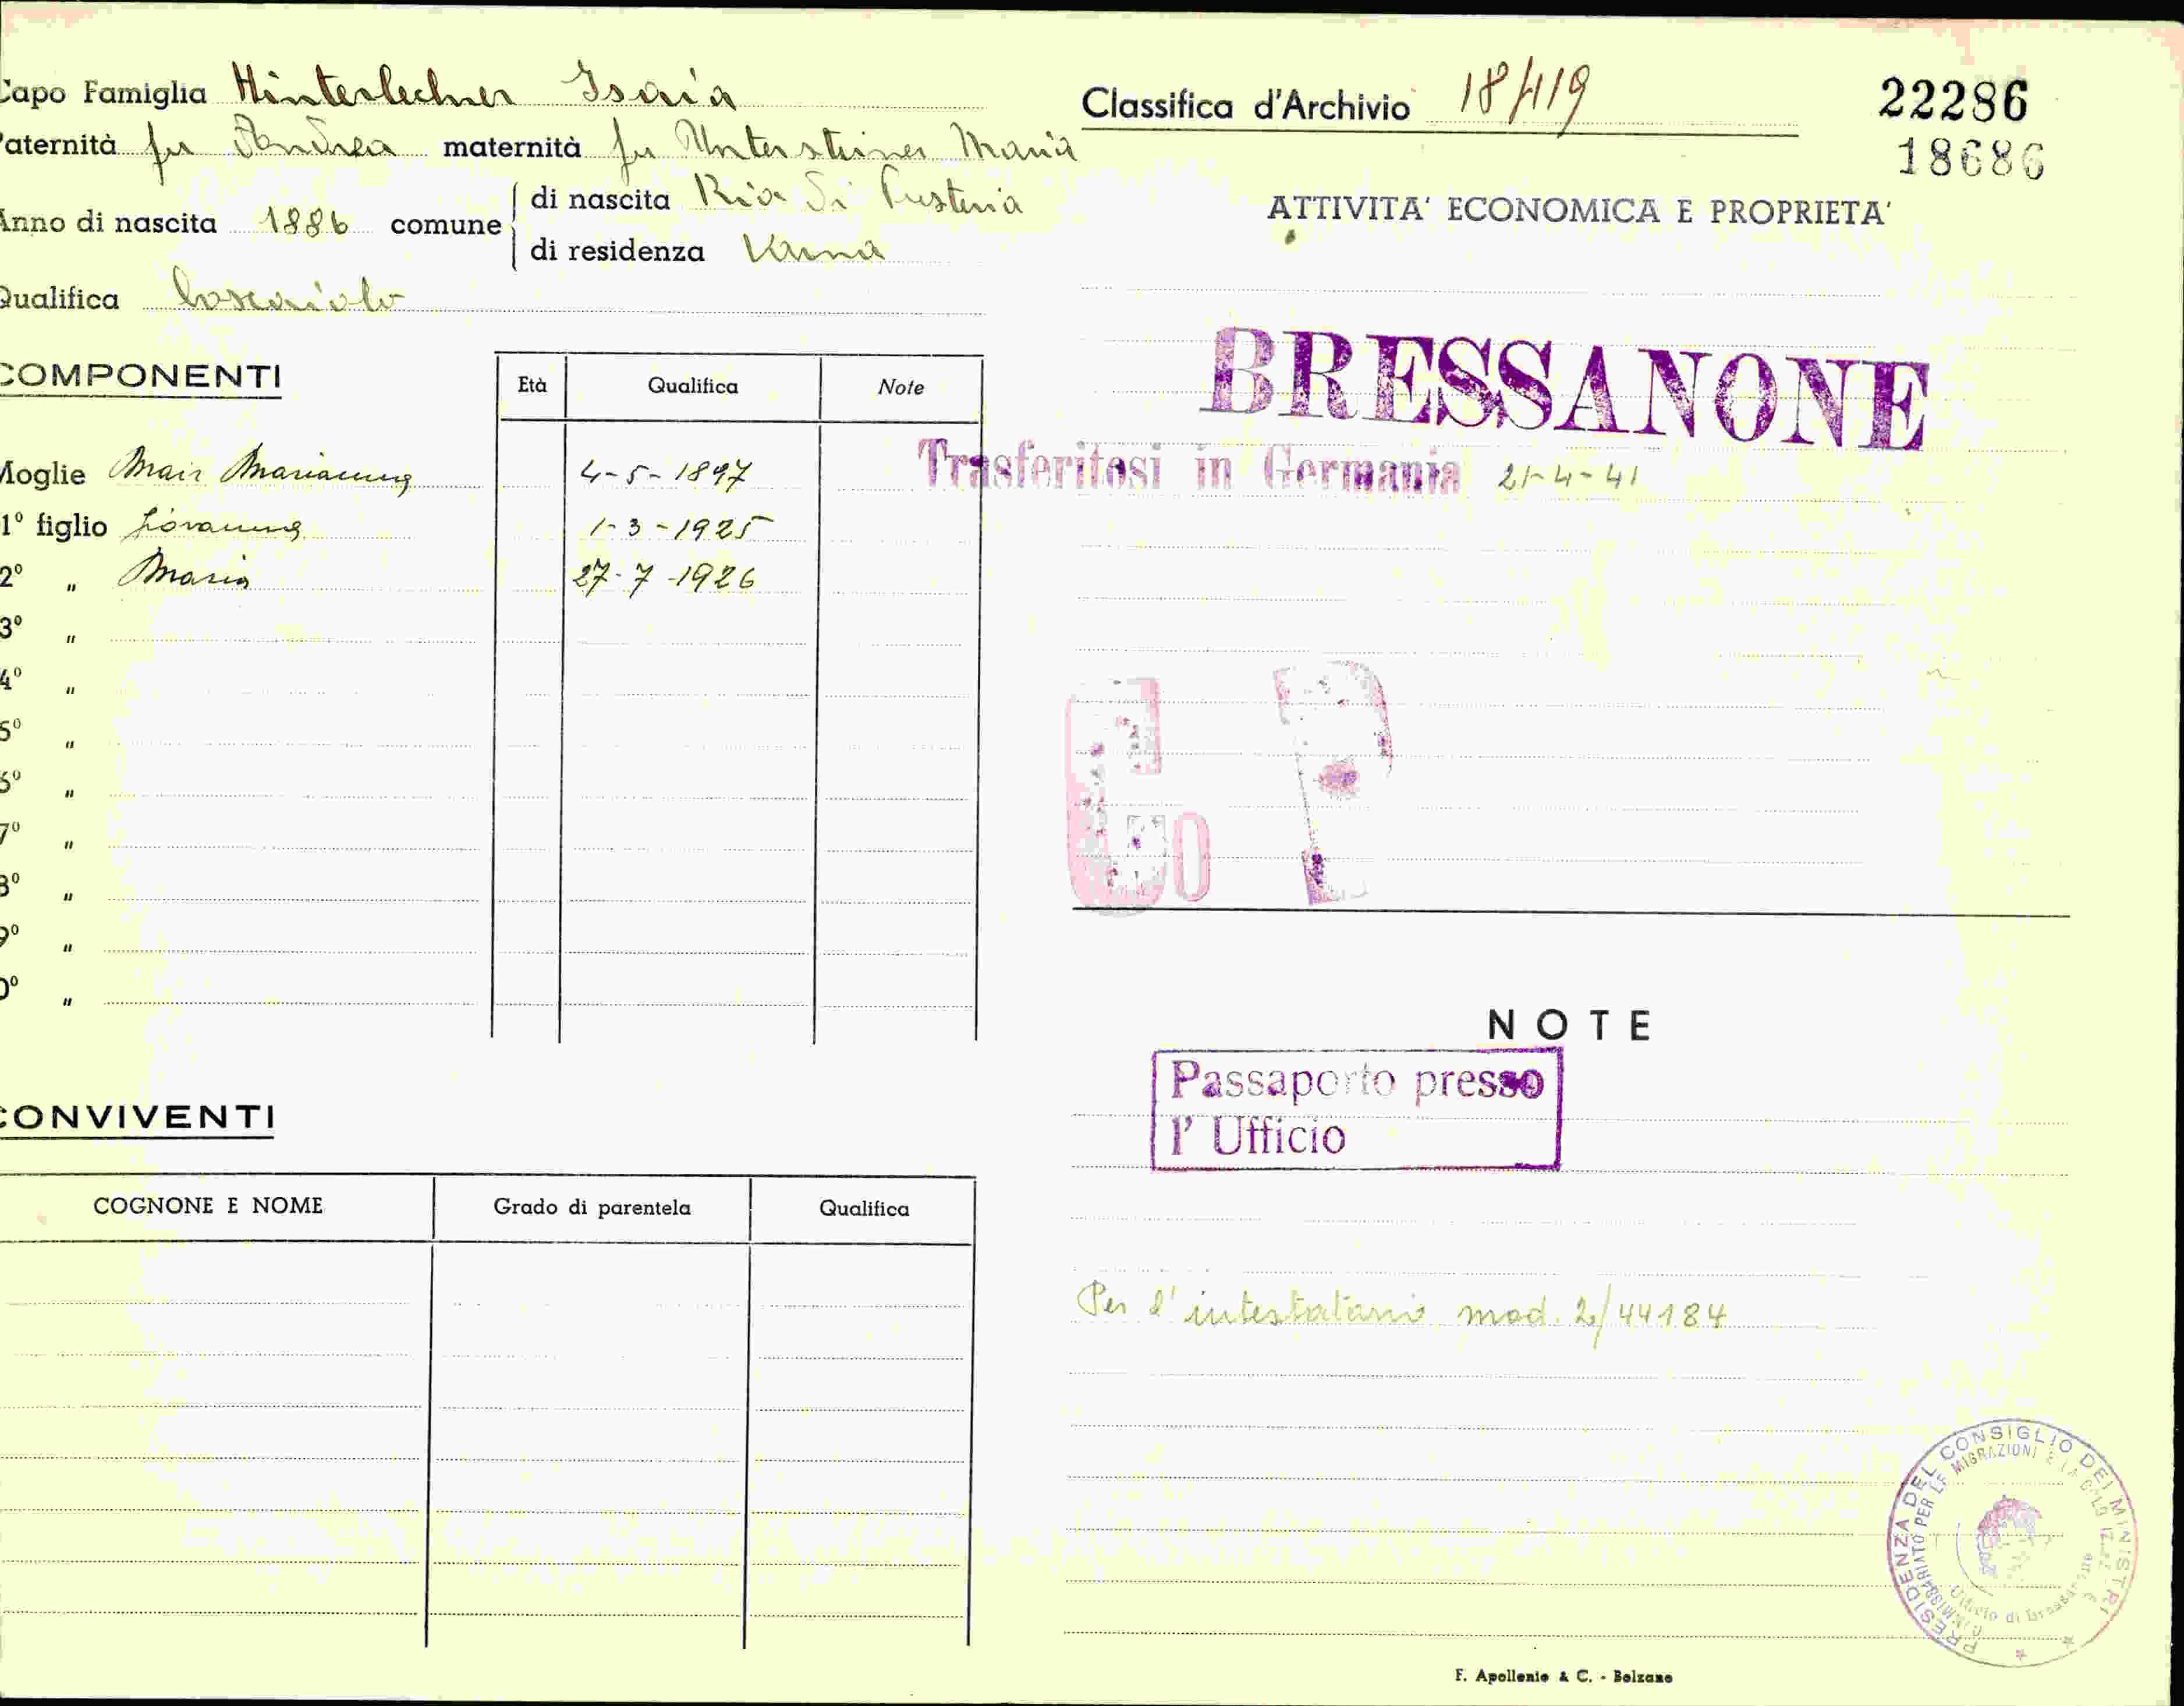 Capo Famiglia Hinterlechner Isaia
Paternità fu Andrea maternità fu Untersteiner Maria
Anno di nascita 1886 comune di nascita Rio di Pusteria
di residenza Varna
Qualifica boscaiolo
COMPONENTI
Età Qualifica Note
Moglie Mair Marianna 4-5-1897
1° figlio Giovanna 1-3-1925
2° " Maria 27-7-1926
3° "
4° "
5° "
6° "
7° "
8° "
9° "
0° "
CONVIVENTI
COGNONE E NOME Grado di parentela Qualifica
Classifica d'Archivio 18/419
22286
18686
ATTIVITA' ECONOMICA E PROPRIETA'
BRESSANONE
Trasferitosi in Germania 21-4-41
NOTE
Passaporto presso
l' Ufficio
Per l'intestatario mod. 2/44184
PRESIDENZA DEL CONSIGLIO DEI MINISTRI
COMMISSARIATO PER LE MIGRAZIONI E LA COLONIZZ.
Ufficio di Bressanone
F. Apollonio & C. - Bolzano